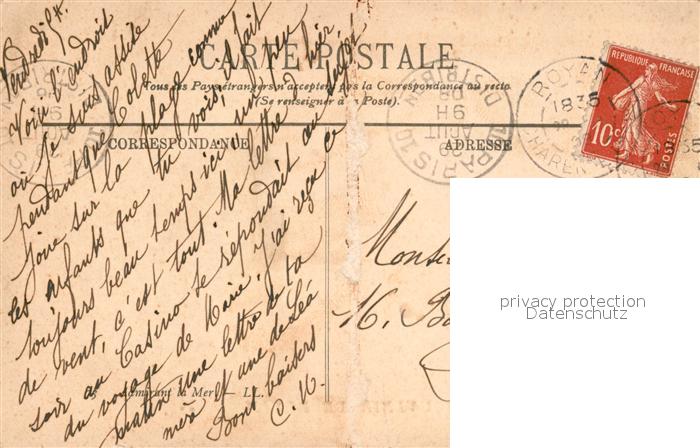 CARTE POSTALE
Tous les Pays étrangers n'acceptent pas la Correspondance au recto
(Se renseigner à la Poste).
CORRESPONDANCE
ADRESSE
Vendredi
Voici l'endroit
où je suis assise
pendant que Colette
joue sur la plage comme
les enfants que tu vois, il fait
toujours beau temps ici un peu
de vent, c'est tout. Ma lettre d'hier
soir au Casino se répondait au sujet
du voyage de Marie. J'ai reçu ce
matin une lettre de ta
mère et une de Léa
Bons baisers
C. M.
Admirant la Mer — LL.
Monsieur
M.
ROYAN
18 35
PARIS
DISTRIBUTION
9H
AOUT
REPUBLIQUE FRANÇAISE
10c
POSTES
privacy protection
Datenschutz